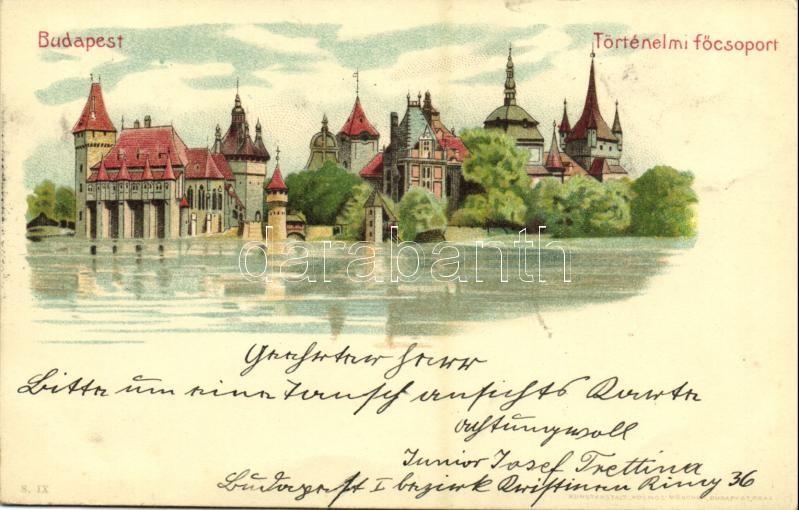 Budapest
Történelmi főcsoport
darabanth
Geehrter Herr
Bitte um eine Tausch ansichts Karte
achtungvoll
Junior Josef Trettina
Budapest I bezirk Kristinen Ring 36
S. IX
KUNSTANSTALT „KOSMOS" MÜNCHEN, BUDAPEST, PRAG